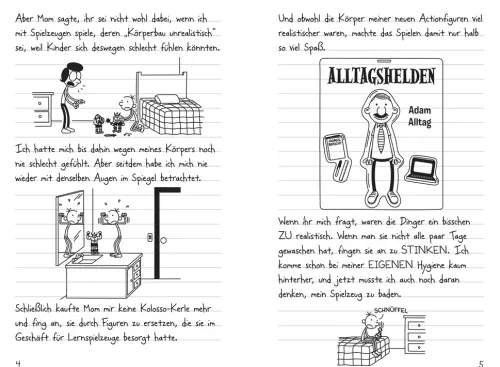 Aber Mom sagte, ihr sei nicht wohl dabei, wenn ich
mit Spielzeugen spiele, deren „Körperbau unrealistisch"
sei, weil Kinder sich deswegen schlecht fühlen könnten.
Ich hatte mich bis dahin wegen meines Körpers noch
nie schlecht gefühlt. Aber seitdem habe ich mich nie
wieder mit denselben Augen im Spiegel betrachtet.
Schließlich kaufte Mom mir keine Kolosso-Kerle mehr
und fing an, sie durch Figuren zu ersetzen, die sie im
Geschäft für Lernspielzeuge besorgt hatte.
4
Und obwohl die Körper meiner neuen Actionfiguren viel
realistischer waren, machte das Spielen damit nur halb
so viel Spaß.
ALLTAGSHELDEN
Adam
Alltag
Wenn ihr mich fragt, waren die Dinger ein bisschen
ZU realistisch. Wenn man sie nicht alle paar Tage
gewaschen hat, fingen sie an zu STINKEN. Ich
komme schon bei meiner EIGENEN Hygiene kaum
hinterher, und jetzt musste ich auch noch daran
denken, mein Spielzeug zu baden.
SCHNÜFFEL
5